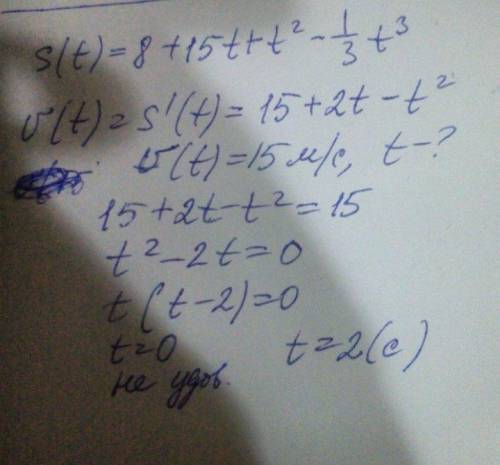 s(t) = 8 + 15t + t² - 1/3 t³
v(t) = s'(t) = 15 + 2t - t²
v(t) = 15 м/с, t - ?
15 + 2t - t² = 15
t² - 2t = 0
t(t - 2) = 0
t = 0 t = 2(с)
не удов.